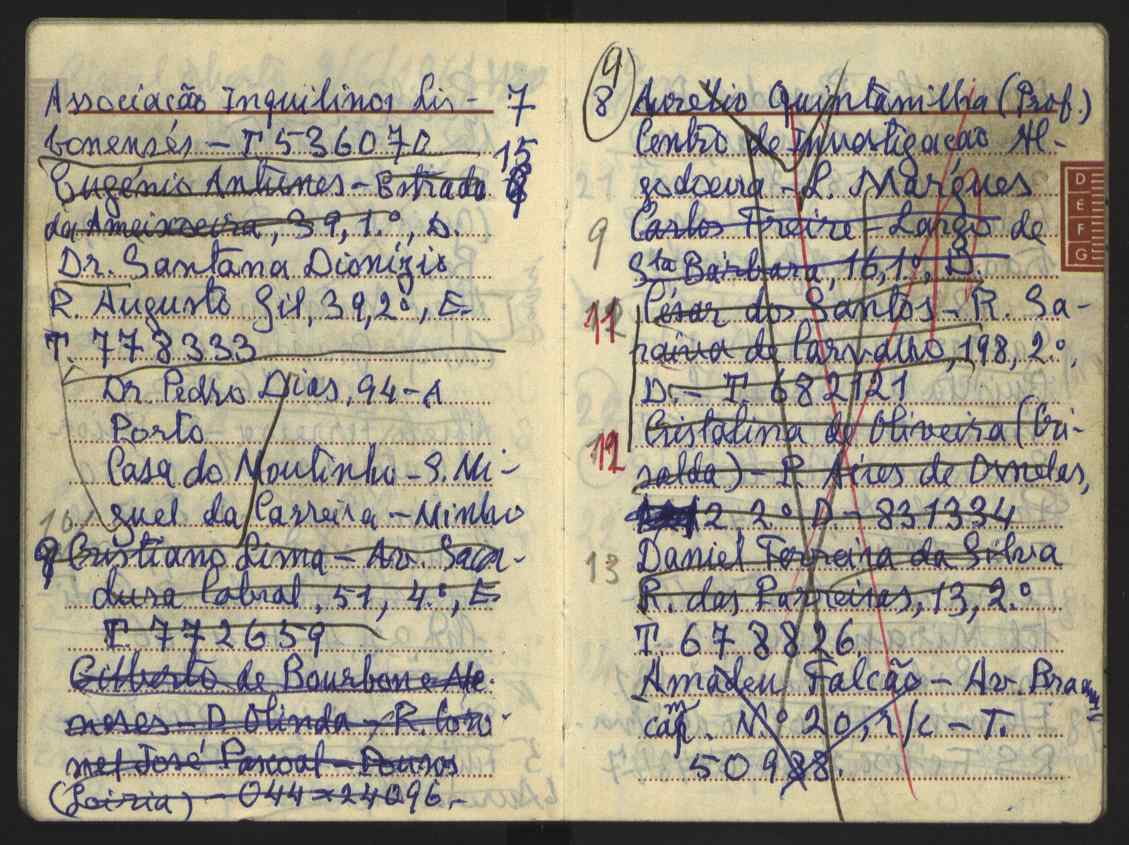 Associação Inquilinos Lis- 7
bonenses - T 536070
15
Eugénio Antunes - Estrada
da Ameixoeira, 39, 1.º, D.
Dr. Santana Dionízio
R. Augusto Gil, 39, 2º, E.
T. 778333
Dr. Pedro Dias, 94-A
Porto
Casa do Moutinho - S. Mi-
guel da Carreira - Minho
10
9 Cristiano Lima - Av. Saca-
dura Cabral, 51, 4.º, E
T. 772659
Gilberto de Bourbon e Me-
neses - D Olinda - R. Coro-
nel José Pascoal - Pousos
(Leiria) - 044 - 24096.-
9
8 Aurélio Quintanilha (Prof.)
Centro de Investigação Al-
godoeira - L. Marques
9 Carlos Freire - Largo de
Sta Bárbara, 16, 1º, D.
11 César dos Santos - R. Sa-
raiva de Carvalho, 198, 2.º,
D. - T. 682121
12 Cristalina de Oliveira (Gri-
salda) - R. Aires de Ornelas,
12 2º D - 831334
13 Daniel Ferreira da Silva
R. das Parreiras, 13, 2.º
T. 678826
Amadeu Falcão - Av. Braam
camp. N.º 20, r/c - T.
50988.
D
E
F
G